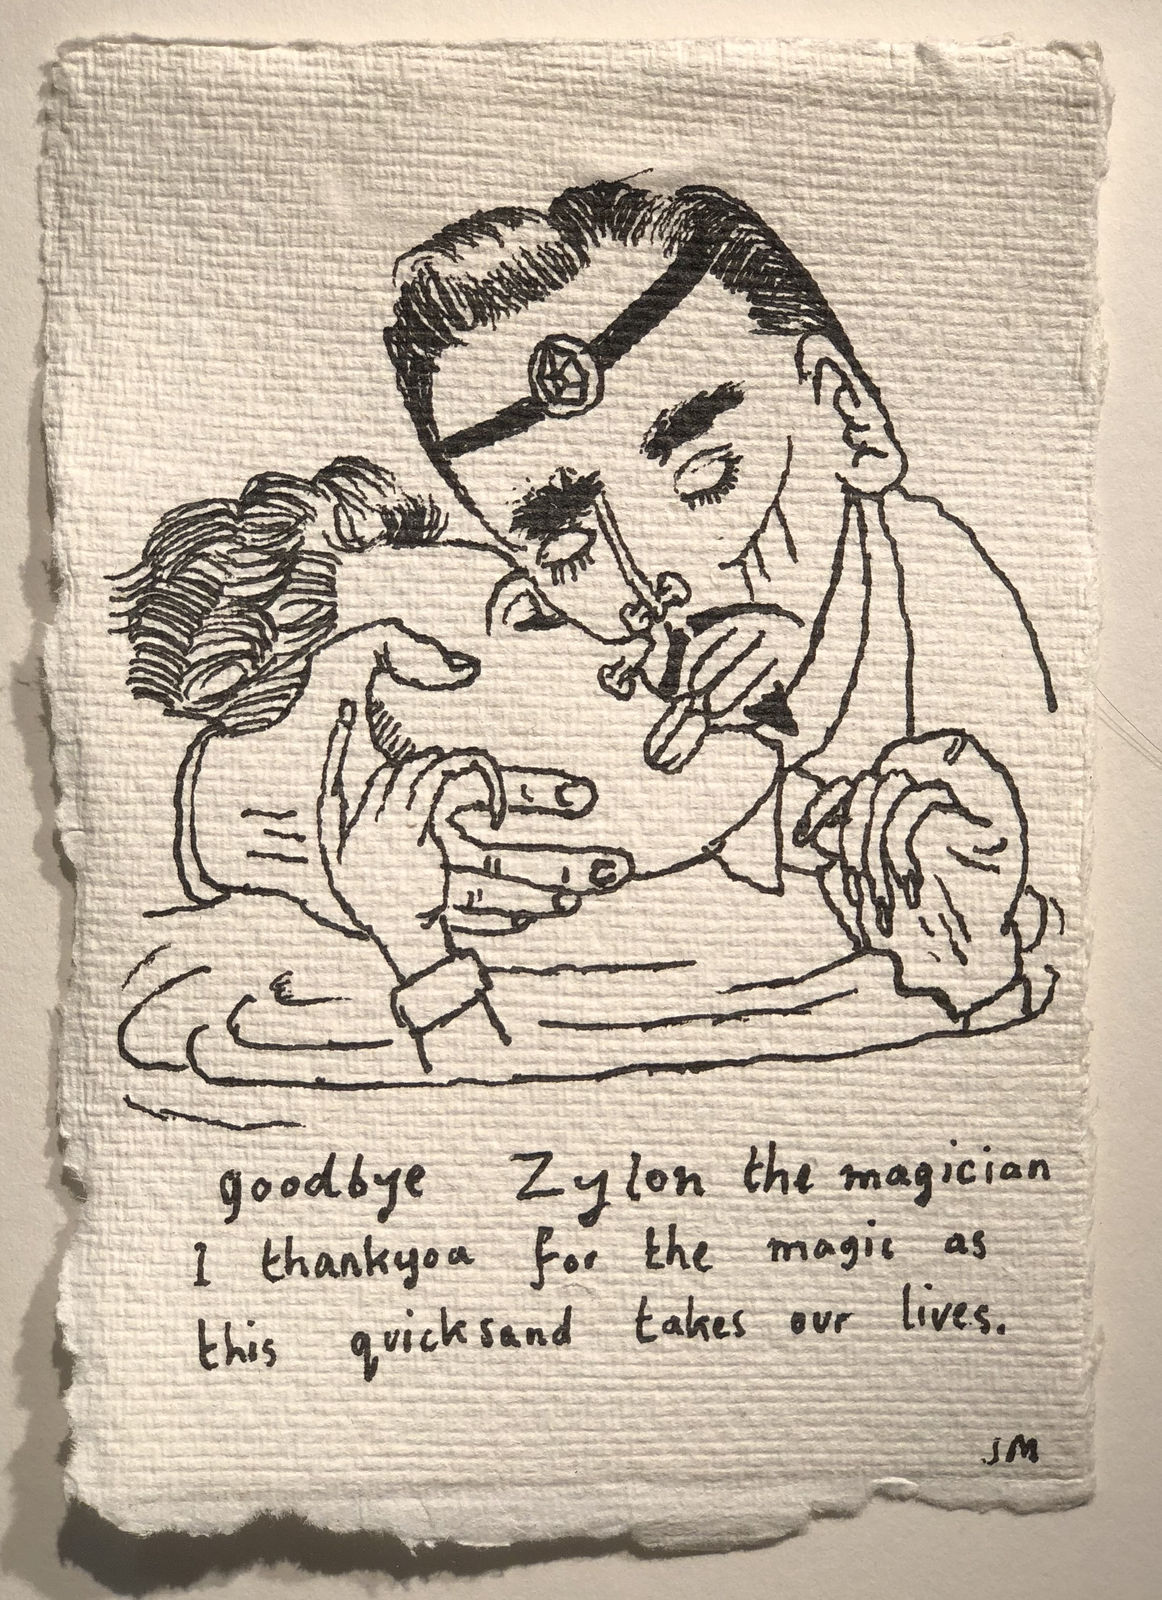 goodbye Zylon the magician
I thankyou for the magic as
this quicksand takes our lives.
JM